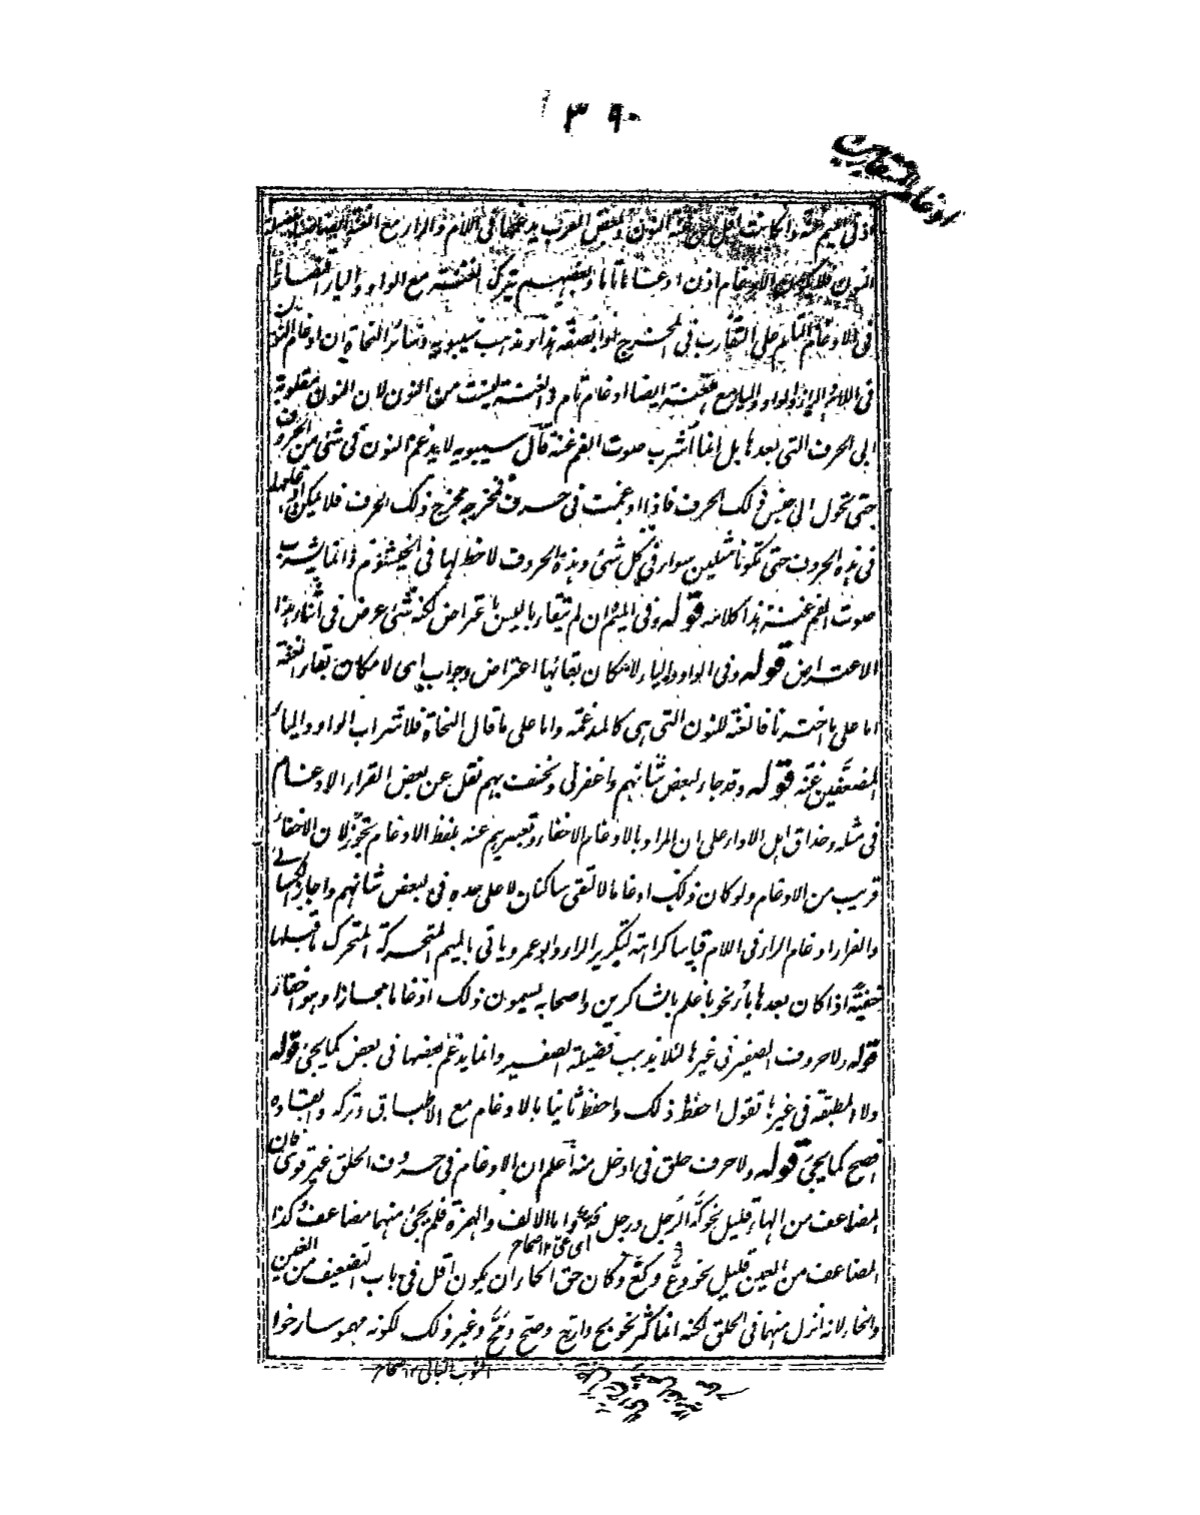 ٣٩٠
ادغام المتقاربين
اذ فى الميم غنة وان كانت اقل من غنة النون وبعض العرب يدغمها فى اللام والراء مع الغنة
النون فلا يكون الادغام اذن ادغاما تاما وبعضهم يترك الغنة مع الواو والياء اقتصارا
فى الادغام التام على التقارب فى المخرج او الصفة هذا ومذهب سيبويه وسائر النحاة ان ادغام النون
فى اللام والراء والواو والياء مع الغنة ايضا ادغام تام والغنة ليست من النون لان النون مقلوبة
الى الحرف التى بعدها بل انما اشرب صوت الفم غنة قال سيبويه لا يدغم النون فى شئ من الحروف
حتى تحول الى جنس ذلك الحرف فاذا ادغمت فى حرف فمخرجه مخرج ذلك الحرف فلا يمكن ادغامها
فى هذه الحروف حتى تكونا مثلين سواء فى كل شئ وهذه الحروف لا حظ لها فى الخيشوم وانما يشرب
صوت الفم غنة هذا كلامه قوله وفى الميم وان لم تتقاربا ليس باعتراض لكنه شئ عرض فى اثناء هذا
الاعتراض قوله وفى الواو والياء لامكان بقائها اعتراض وجواب اى لامكان بقاء الغنة
اما على ما اخترنا فالغنة للنون التى هى كالمدغمة واما على ما قال النحاة فلاشراب الواو والياء
المضعفين غنة قوله وقد جاء لبعض شانهم واغفر لى ونخسف بهم نقل عن بعض القراء الادغام
فى مثله وحذاق اهل الاداء على ان المراد بالادغام الاخفاء وتعبيرهم عنه بلفظ الادغام تجوز لان الاخفاء
قريب من الادغام ولو كان ذلك ادغاما لالتقى ساكنان لا على حده فى لبعض شانهم واجاز الكسائى
والفراء ادغام الراء فى اللام قياسا كراهة لتكرير الراء وابو عمرو ياتى بالميم المتحركة المتحرك ما قبلها
خفية اذا كان بعدها باء نحو باعلم بالشاكرين واصحابه يسمون ذلك ادغاما مجازا وهو اخفاء
قوله ولا حروف الصفير فى غيرها لئلا يذهب فضيلة الصفير وانما يدغم بعضها فى بعض كما يجئ قوله
ولا المطبقة فى غيرها تقول احفظ ذلك واحفظ ثابتا بالادغام مع الاطباق وتركه وابقاؤه
افصح كما يجئ قوله ولا حرف حلق فى ادخل منه اعلم ان الادغام فى حروف الحلق غير قوى فان
المضاعف من الهاء قليل نحو كه الرجل ورجل فه واما الالف والهمزة فلم يجئ منهما مضاعف وكذا
اى عى ١٢ صحاح
المضاعف من العين قليل نحو دع وكع وكان حق الحاء ان يكون اقل فى باب التضعيف من الغين
والخاء لانه انزل منهما فى الحلق لكنه انما كثر نحو بح واتح وصح وفح وغير ذلك لكونه مهموسا رخوا
الثوب البالى ١٢ صحاح